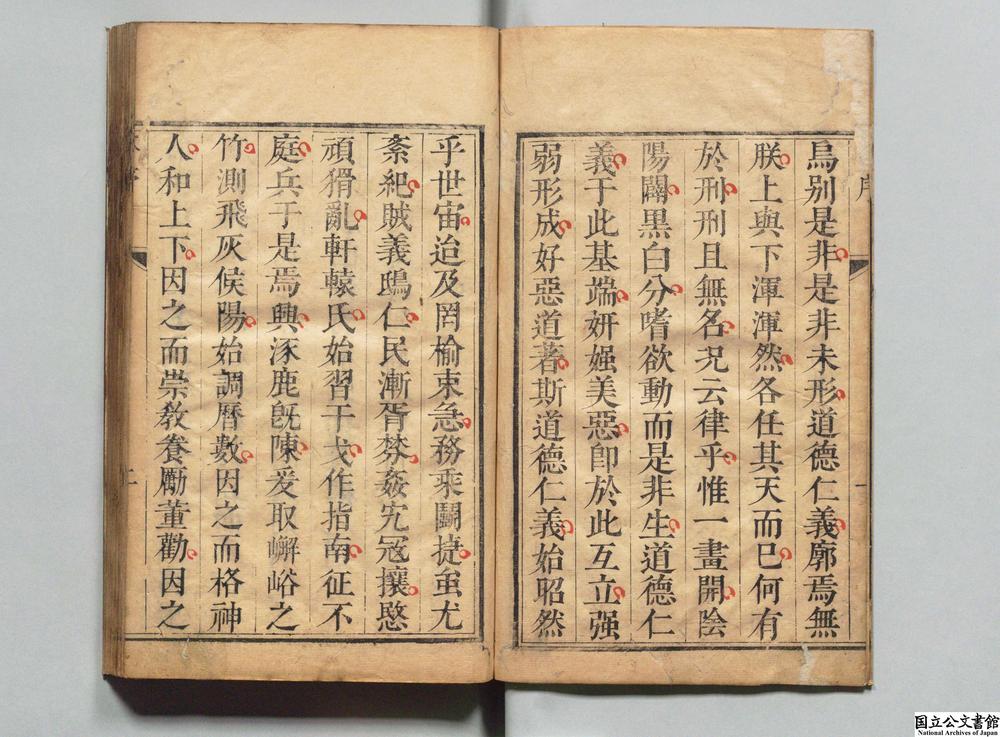 序
烏别是非是非未形道德仁義廓焉無
朕上與下渾渾然各任其天而已何有
於刑刑且無名况云律乎惟一畫開陰
陽闢黒白分嗜欲動而是非生道德仁
義于此基端妍媸美惡卽於此互立强
弱形成好惡道著斯道德仁義始昭然
一
乎世宙迨及罔愉束急務乘鬭捷蚩尤
紊紀賊義鴟仁民漸胥棼姦宄冦攘愍
頑猾亂軒轅氏始習干戈作指南征不
庭兵于是焉興涿鹿旣陳爰取嶰峪之
竹測飛灰候陽始調曆數因之而格神
人和上下因之而崇敎養勵董勸因之
二
国立公文書館
National Archives of Japan